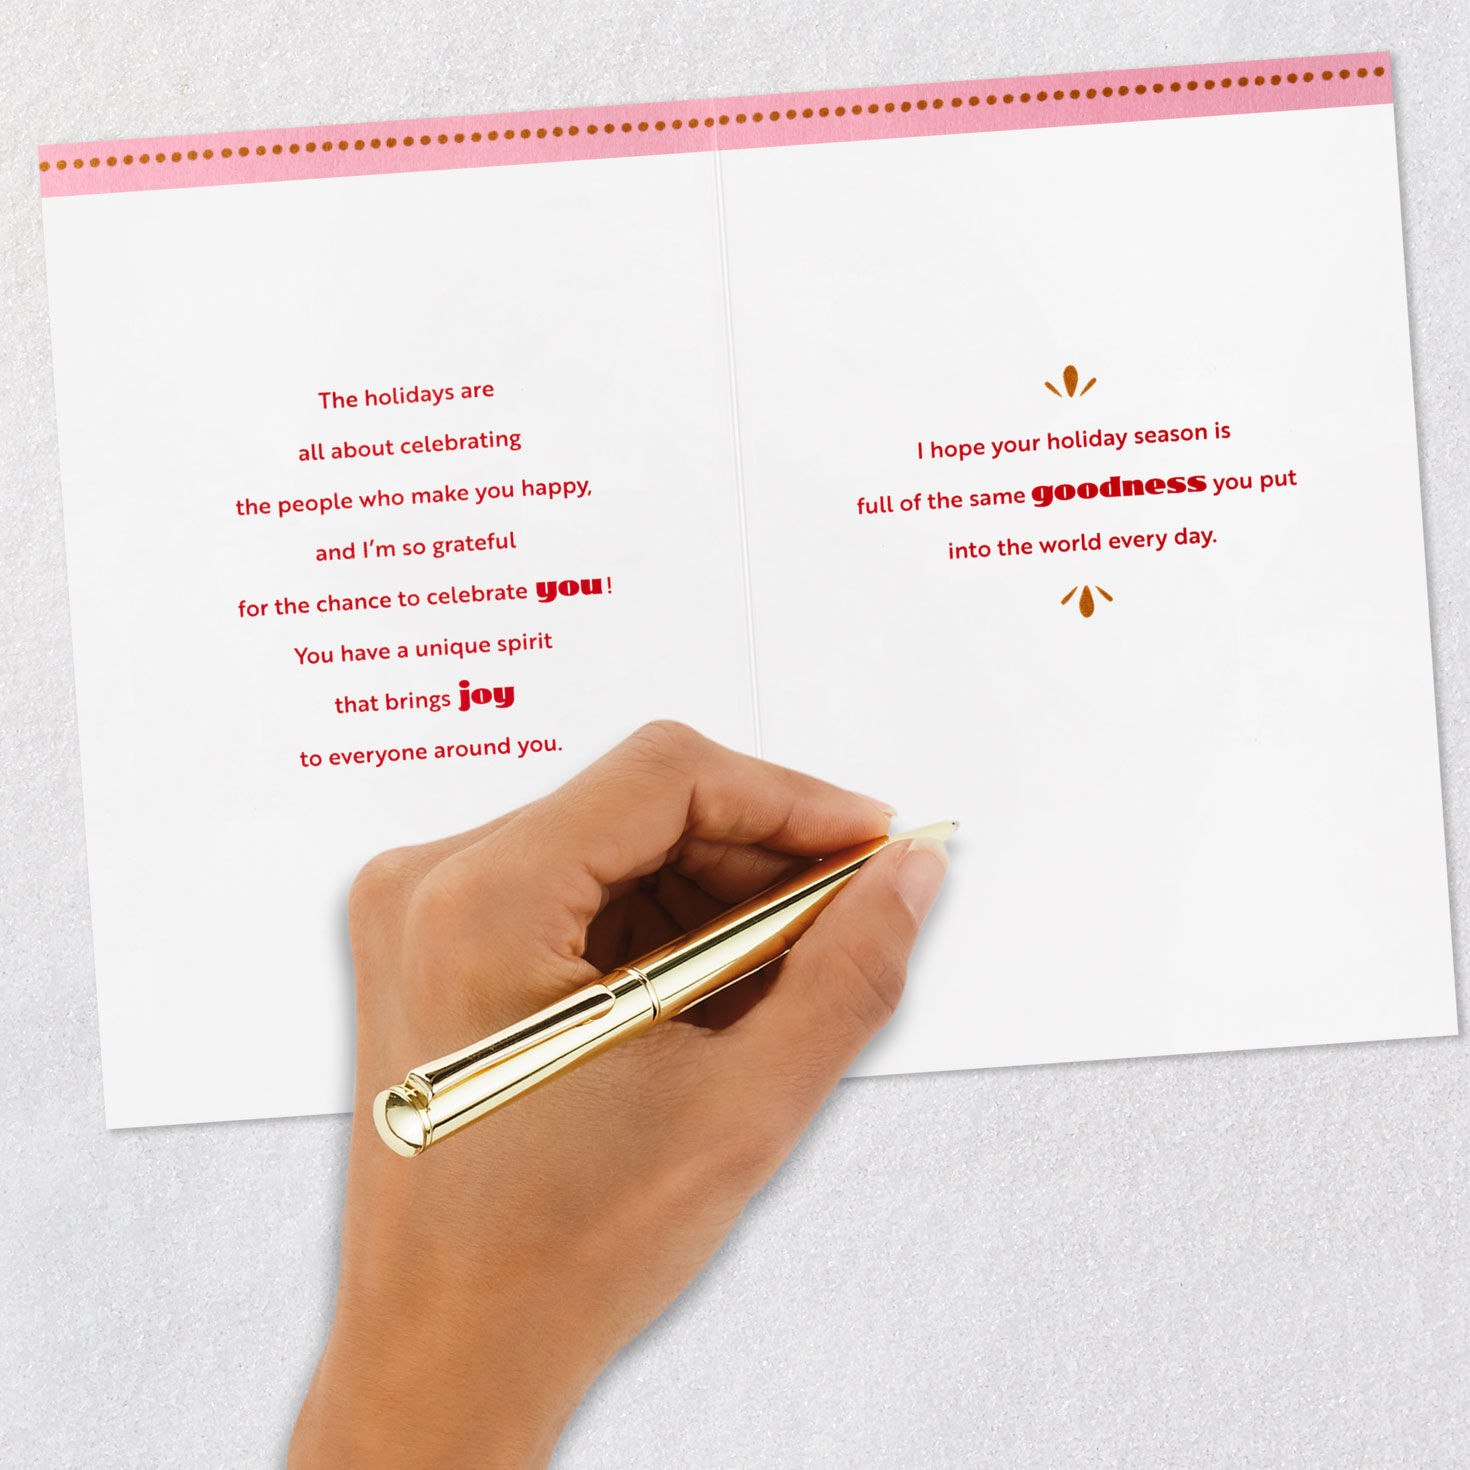 The holidays are
all about celebrating
the people who make you happy,
and I'm so grateful
for the chance to celebrate you!
You have a unique spirit
that brings joy
to everyone around you.
I hope your holiday season is
full of the same goodness you put
into the world every day.